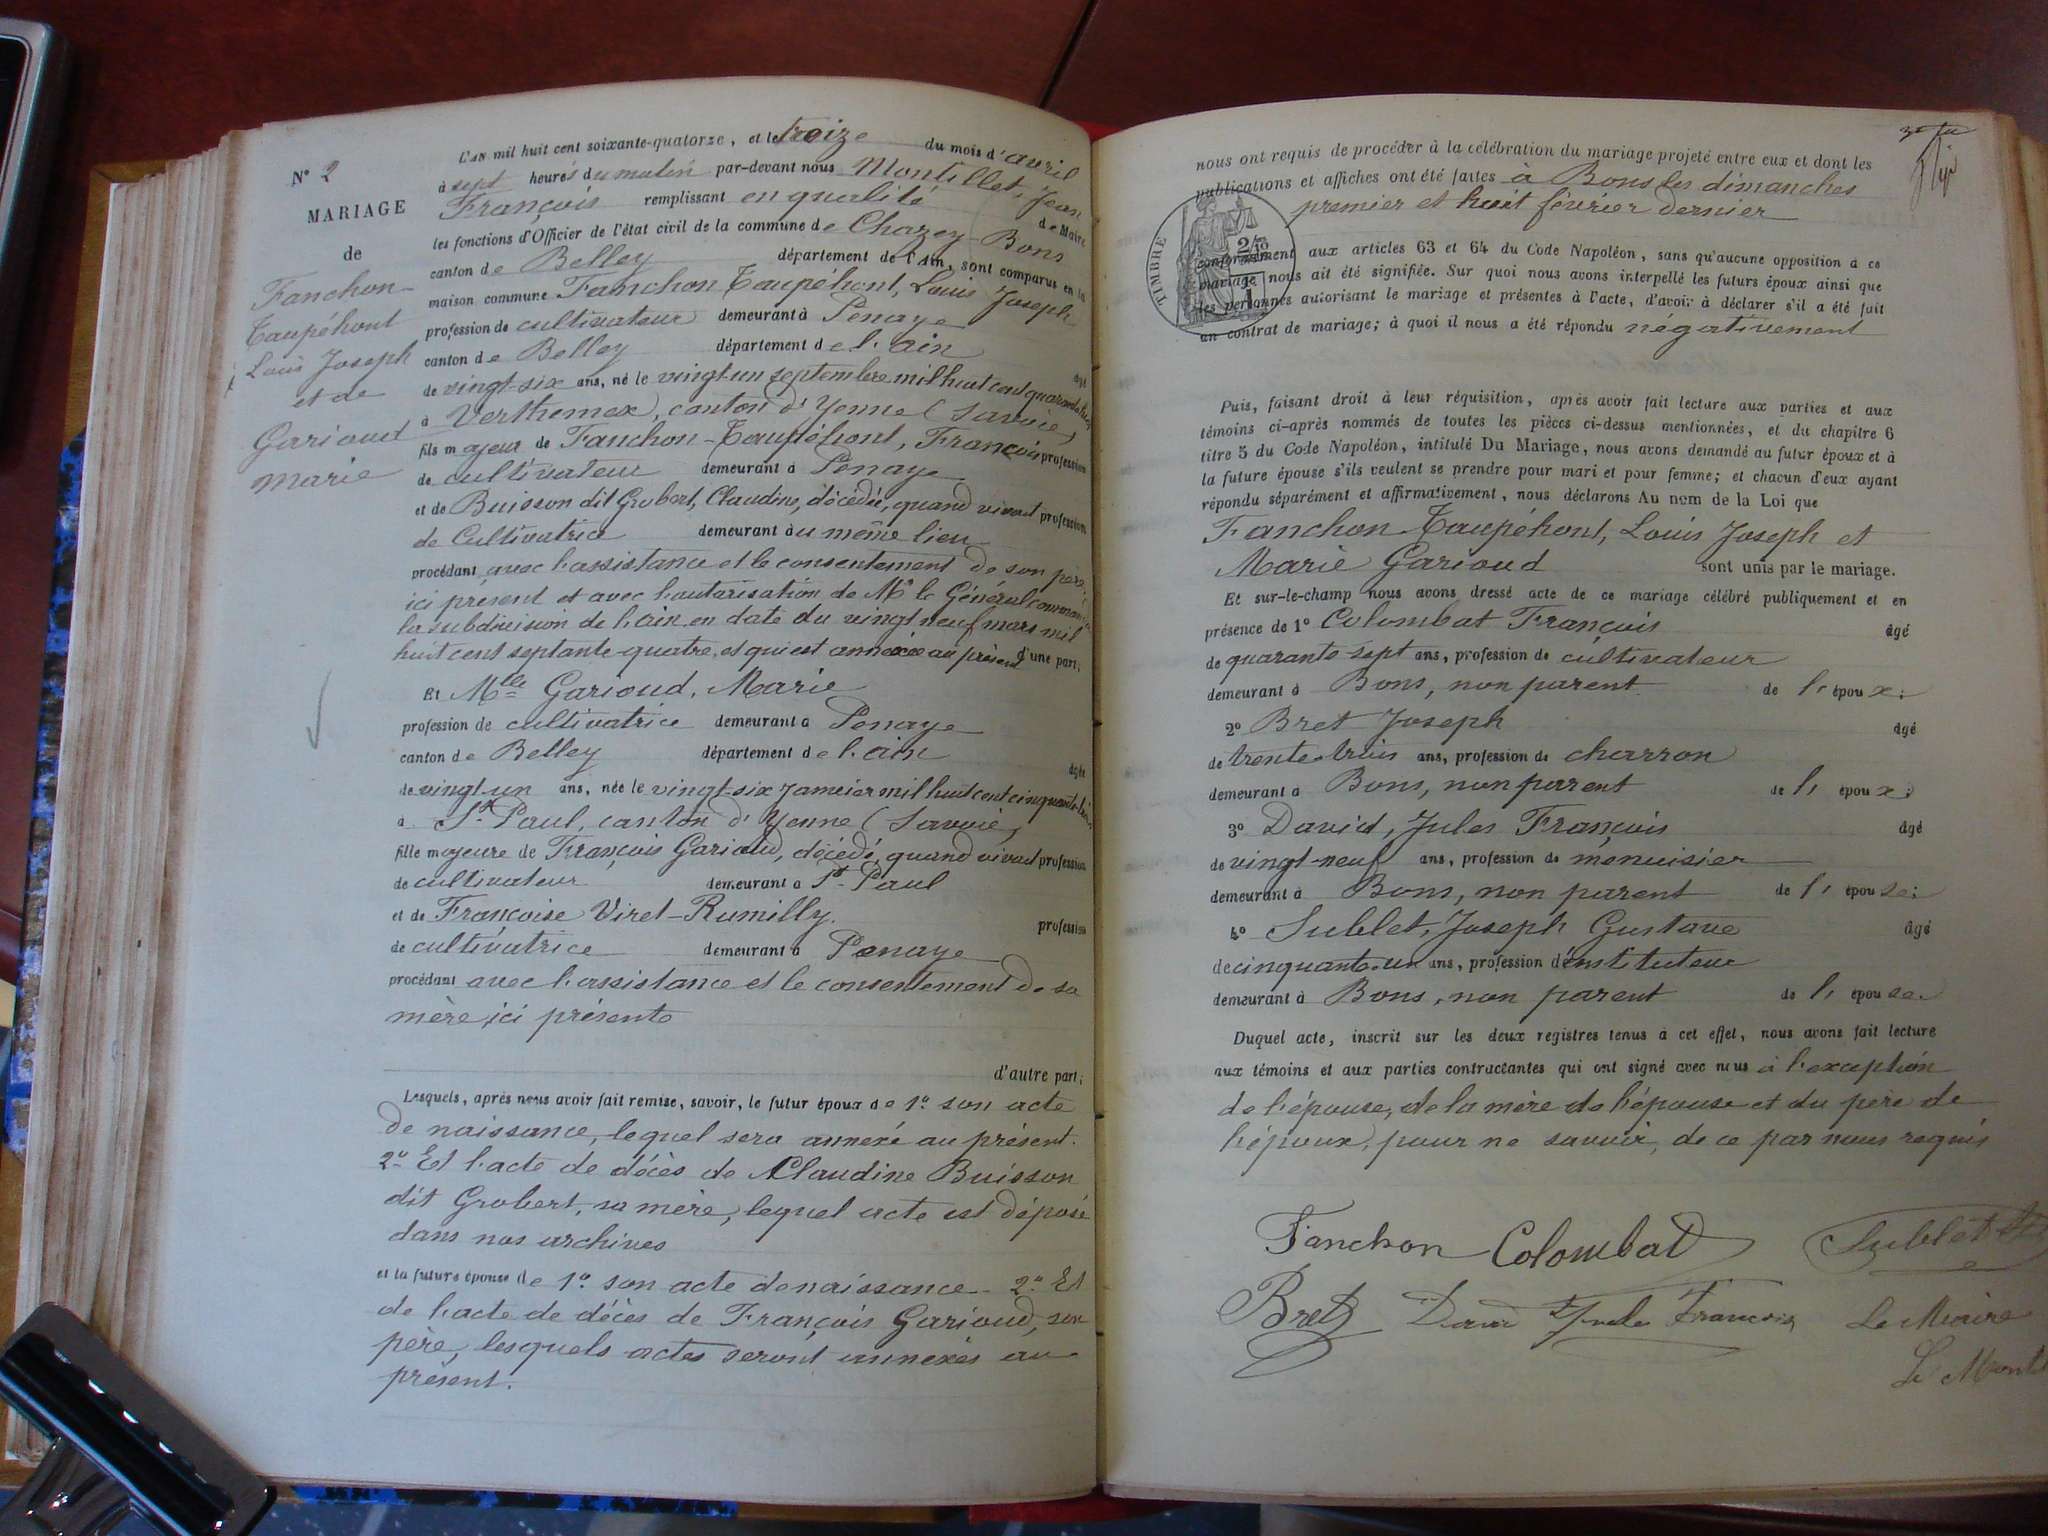 N° 2
MARIAGE
de
Fanchon-
Taupéhont
Louis Joseph
et de
Garioud
Marie
L'an mil huit cent soixante-quatorze, et le treize du mois d'avril
à sept heures du matin par-devant nous Montillet, Jean
François remplissant en qualité de Maire
les fonctions d'Officier de l'état civil de la commune de Chazey-Bons
canton de Belley département de l'Ain, sont comparus en la
maison commune Fanchon Taupéhont, Louis Joseph
profession de cultivateur demeurant à Penaye
canton de Belley département de l'ain
âgé
de vingt-six ans, né le vingt-un septembre mil huit cent quarante
à Verthemex, canton d'Yenne (Savoie)
fils majeur de Fanchon-Taupéhont, François profession
de cultivateur demeurant à Penaye
et de Buisson dit Grobert, Claudine, décédée, quand vivait profession
de Cultivatrice demeurant au même lieu
procédant avec l'assistance et le consentement de son père
ici présent et avec l'autorisation de Mr le Général
la subdivision de l'ain en date du vingt neuf mars mil
huit cent septante-quatre, et qui est annexée au présent d'une part;
Et Mlle Garioud, Marie
profession de cultivatrice demeurant à Penaye
canton de Belley département de l'ain
âgée
de vingt-un ans, née le vingt-six janvier mil huit cent cinquante-trois
à St Paul, canton d'Yenne (Savoie)
fille majeure de François Garioud, décédé, quand vivait profession
de cultivateur demeurant à St-Paul
et de Françoise Viret-Rumilly. profession
de cultivatrice demeurant à Penaye
procédant avec l'assistance et le consentement de sa
mère, ici présente
d'autre part;
Lesquels, après nous avoir fait remise, savoir, le futur époux de 1° son acte
de naissance, lequel sera annexé au présent.
2° Et l'acte de décès de Claudine Buisson
dit Grobert, sa mère, lequel acte est déposé
dans nos archives
et la future épouse de 1° son acte de naissance - 2° Et
de l'acte de décès de François Garioud, son
père, lesquels actes seront annexés au
présent.
nous ont requis de procéder à la célébration du mariage projeté entre eux et dont les
publications et affiches ont été faites à Bons les dimanches
premier et huit février dernier
TIMBRE
conformément aux articles 63 et 64 du Code Napoléon, sans qu'aucune opposition à ce
mariage nous ait été signifiée. Sur quoi nous avons interpellé les futurs époux ainsi que
les personnes autorisant le mariage et présentes à l'acte, d'avoir à déclarer s'il a été fait
un contrat de mariage; à quoi il nous a été répondu négativement
Puis, faisant droit à leur réquisition, après avoir fait lecture aux parties et aux
témoins ci-après nommés de toutes les pièces ci-dessus mentionnées, et du chapitre 6
titre 5 du Code Napoléon, intitulé Du Mariage, nous avons demandé au futur époux et à
la future épouse s'ils veulent se prendre pour mari et pour femme; et chacun d'eux ayant
répondu séparément et affirmativement, nous déclarons Au nom de la Loi que
Fanchon Taupéhont, Louis Joseph et
Marie Garioud sont unis par le mariage.
Et sur-le-champ nous avons dressé acte de ce mariage célébré publiquement et en
présence de 1° Colombat François âgé
de quarante sept ans, profession de cultivateur
demeurant à Bons, non parent de l' époux;
2° Bret Joseph âgé
de trente-trois ans, profession de charron
demeurant à Bons, non parent de l' époux;
3° David, Jules François âgé
de vingt-neuf ans, profession de menuisier
demeurant à Bons, non parent de l' épouse;
4° Sublet, Joseph Gustave âgé
de cinquante-un ans, profession d'instituteur
demeurant à Bons, non parent de l' épouse.
Duquel acte, inscrit sur les deux registres tenus à cet effet, nous avons fait lecture
aux témoins et aux parties contractantes qui ont signé avec nous à l'exception
de l'épouse, de la mère de l'épouse et du père de
l'époux, pour ne savoir, de ce par nous requis
Fanchon Colombat Sublet
Bret David Jules François Le Maire